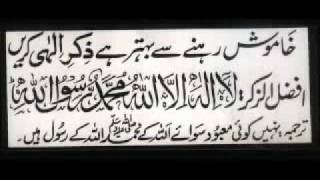 خاموش رہنے سے بہتر ہے ذکر الٰہی کریں
افضل الذکر لَا اِلٰهَ اِلَّا اللّٰهُ مُحَمَّدٌ رَّسُوْلُ اللّٰهِ
ترجمہ نہیں کوئی معبود سوائے اللہ کے محمد ﷺ اللہ کے رسول ہیں۔